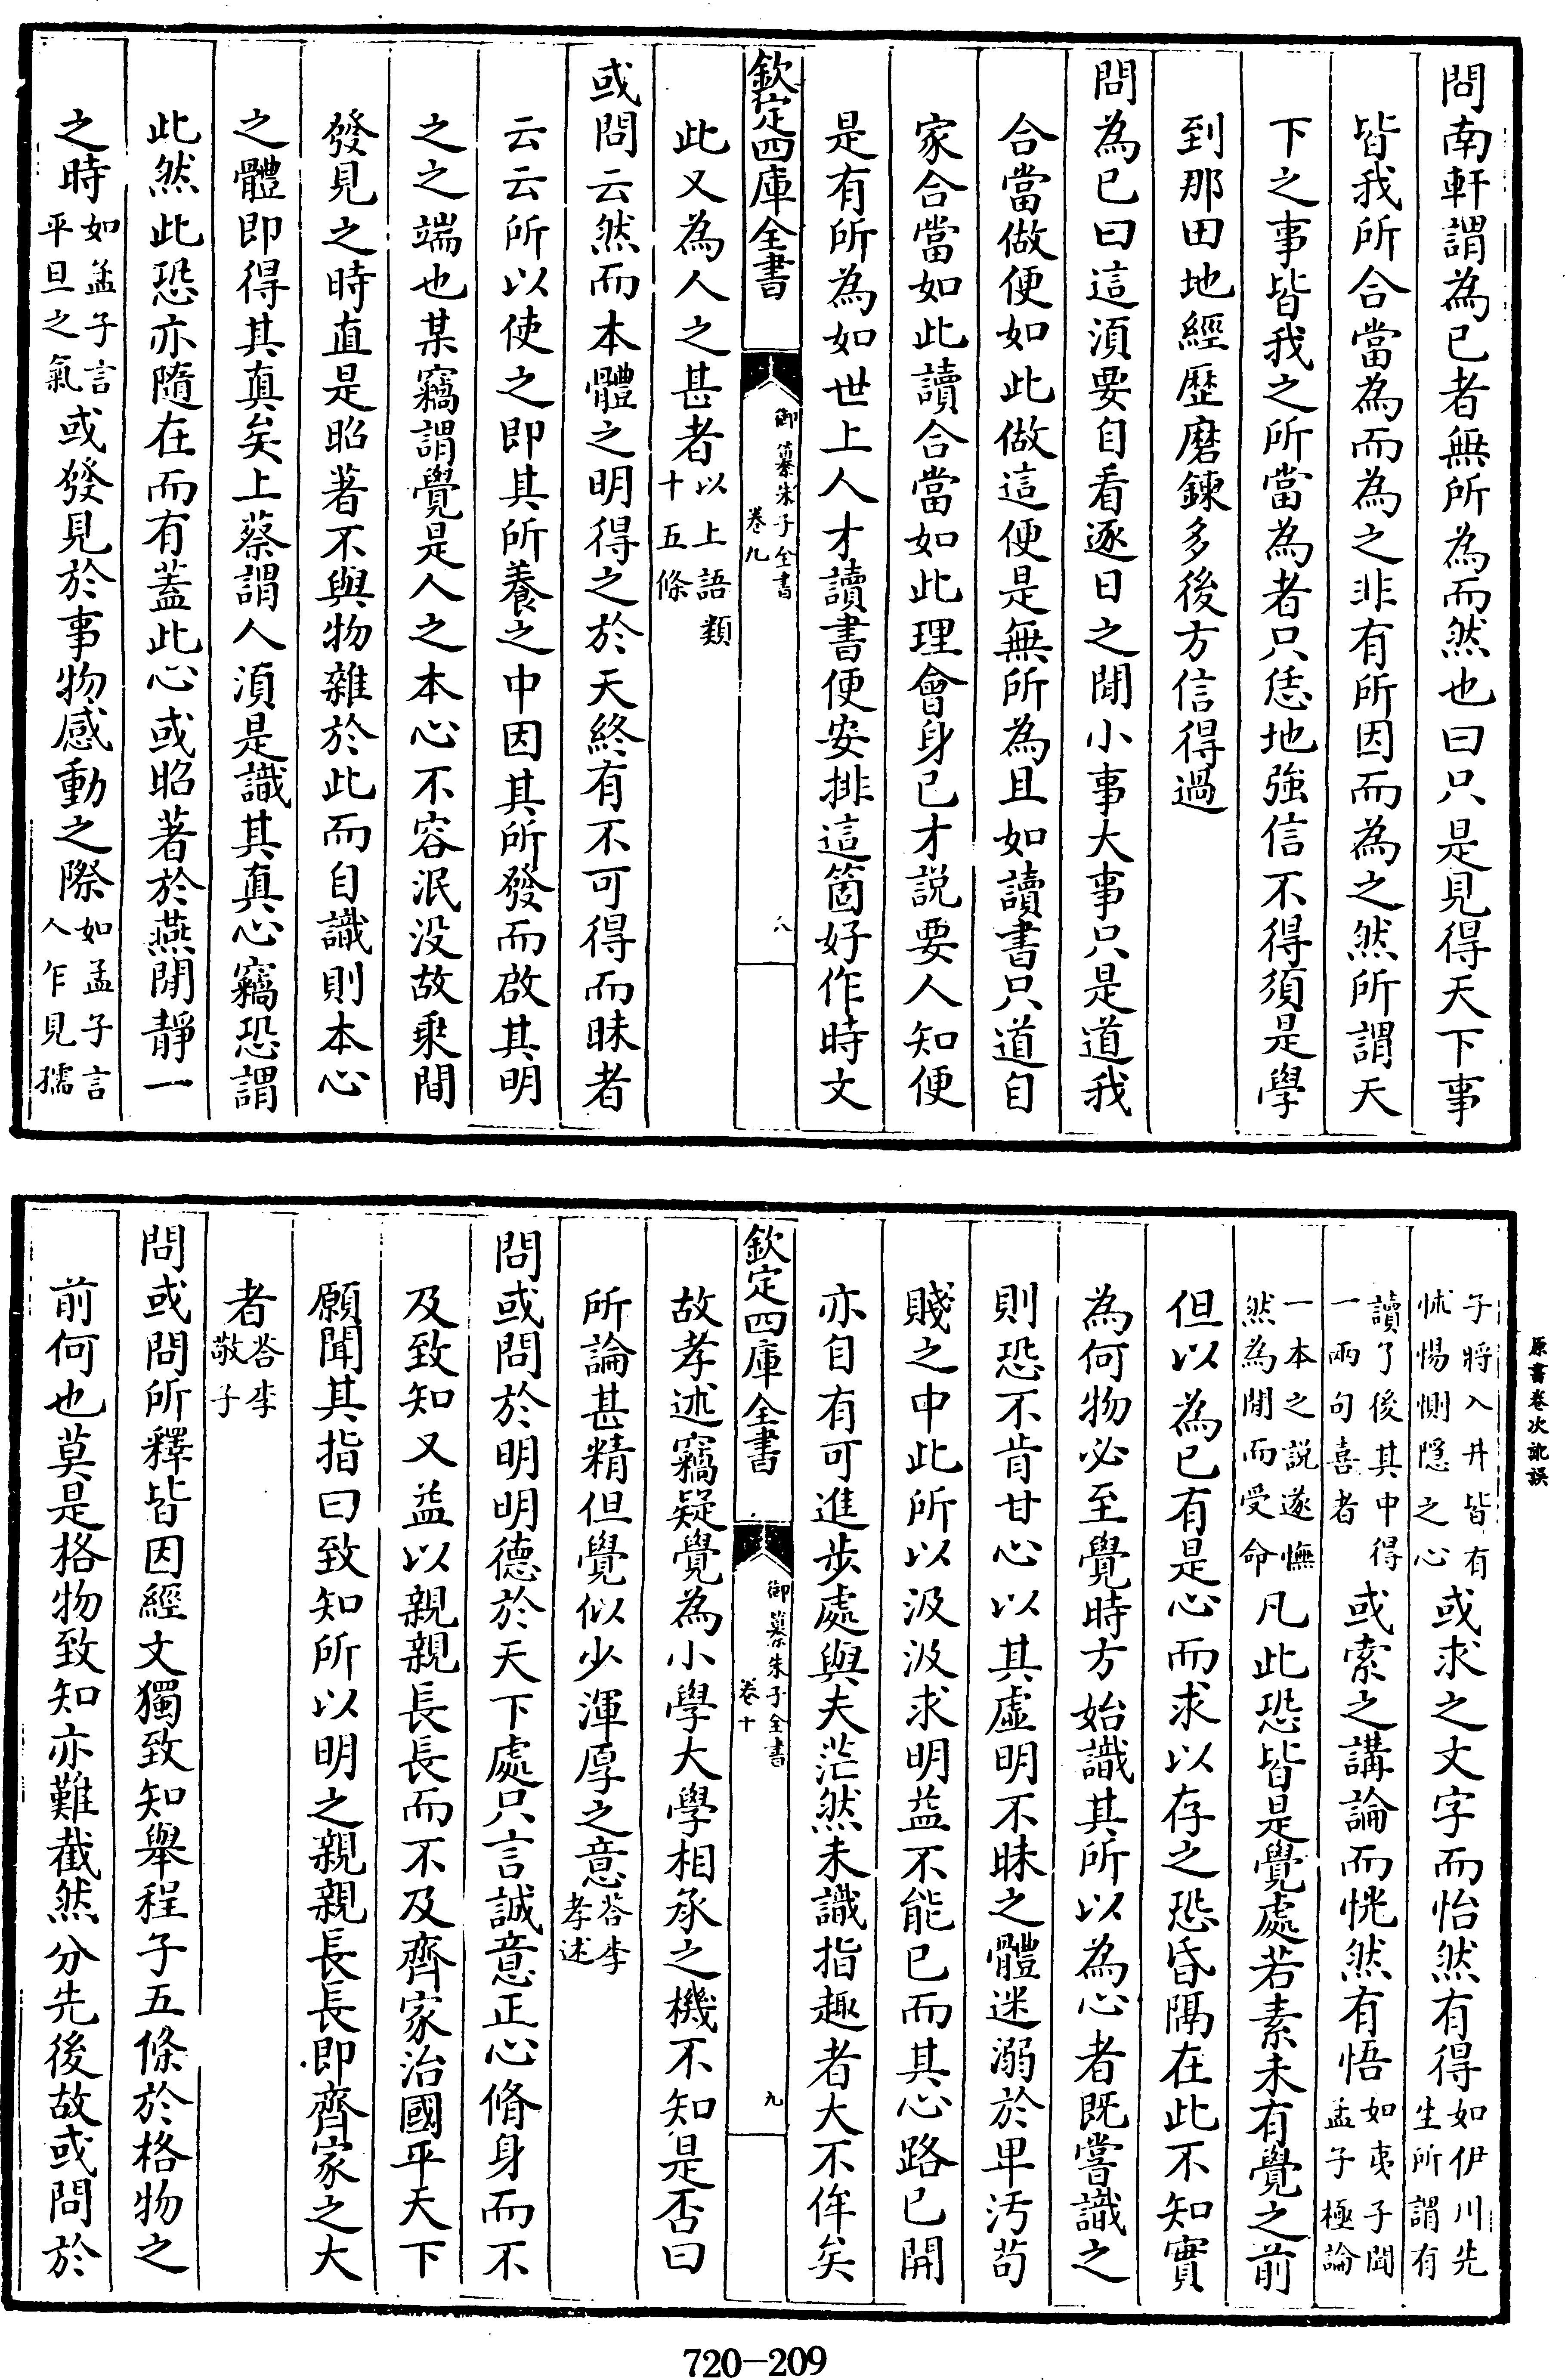 問南軒謂為已者無所為而然也曰只是見得天下事
皆我所合當為而為之非有所因而為之然所謂天
下之事皆我之所當為者只恁地強信不得須是學
到那田地經歴磨鍊多後方信得過
問為已曰這湏要自看逐日之間小事大事只是道我
合當做便如此做這便是無所為且如讀書只道自
家合當如此讀合當如此理會身已才説要人知便
是有所為如世上人才讀書便安排這箇好作時文
欽定四庫全書
御纂朱子全書
卷九
八
此又為人之甚者以上語類
十五條
或問云然而本體之明得之於天終有不可得而昧者
云云所以使之即其所養之中因其所發而啟其明
之之端也某竊謂覺是人之本心不容泯没故乘間
發見之時直是昭著不與物雜於此而自識則本心
之體即得其真矣上蔡謂人湏是識其真心竊恐謂
此然此恐亦隨在而有蓋此心或昭著於燕閒靜一
之時如孟子言
平旦之氣或發見於事物感動之際如孟子言
人乍見孺
原書卷次訛誤
子將入井皆有
怵惕惻隠之心或求之文字而怡然有得如伊川先
生所謂有
讀了後其中得
一兩句喜者或索之講論而恍然有悟如夷子聞
孟子極論
一本之説遂憮
然為間而受命凡此恐皆是覺處若素未有覺之前
但以為已有是心而求以存之恐昏隔在此不知實
為何物必至覺時方始識其所以為心者既嘗識之
則恐不肯甘心以其虛明不昧之體迷溺於卑汚苟
賤之中此所以汲汲求明益不能已而其心路已開
亦自有可進步處與夫茫然未識指趣者大不侔矣
欽定四庫全書
御纂朱子全書
卷十
九
故孝述竊疑覺為小學大學相承之機不知是否曰
所論甚精但覺似少渾厚之意答李
孝述
問或問於明明德於天下處只言誠意正心脩身而不
及致知又益以親親長長而不及齊家治國平天下
願聞其指曰致知所以明之親親長長即齊家之大
者答李
敬子
問或問所釋皆因經文獨致知舉程子五條於格物之
前何也莫是格物致知亦難截然分先後故或問於
720-209